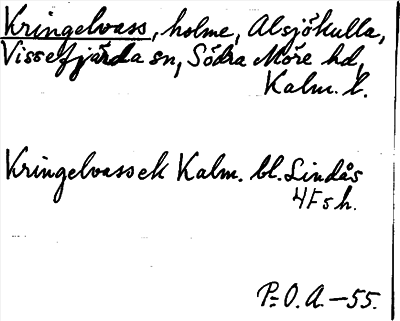 Kringelvass, holme, Alsjökulla,
Vissefjärda sn, Södra Möre hd,
Kalm. l.
Kringelvassek Kalm. bl. Lindås
4F5h.
P. O. A. -55.